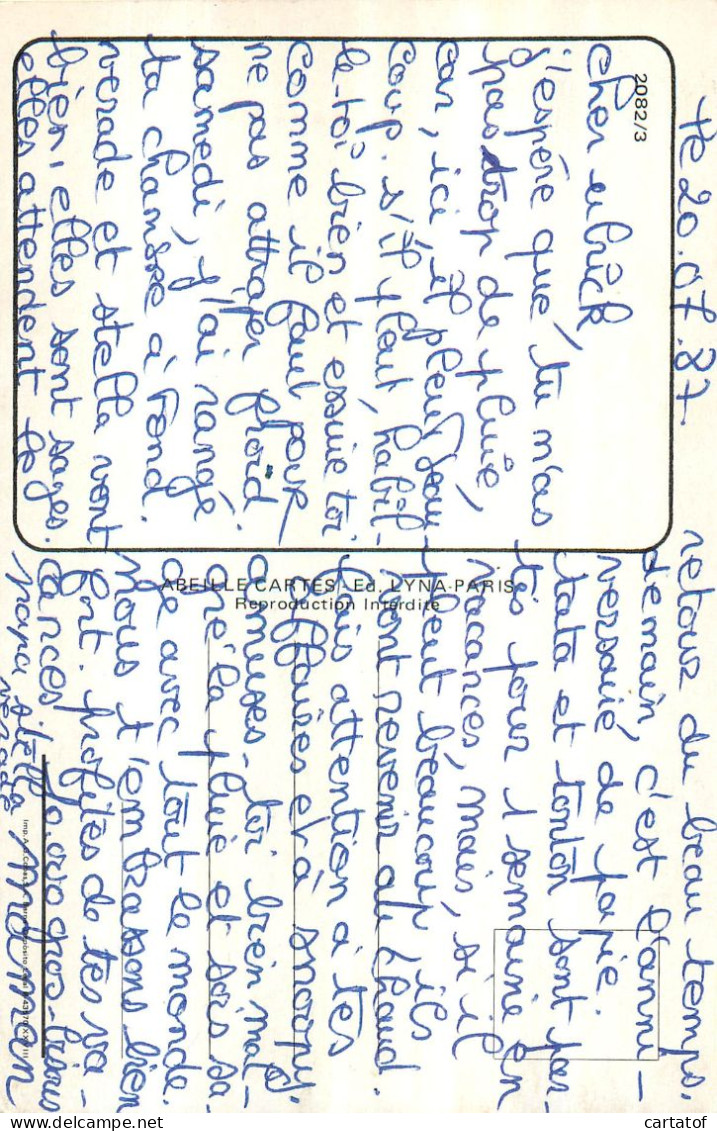 le 20.07.87.
2082/3
cher ulrick
j'espère que, tu n'as
pas trop de pluie,
car, ici, il pleut beau-
coup. s'il plaut, habil-
le-toi bien et essuie toi
comme il faut pour
ne pas attraper froid.
samedi, j'ai rangé
ta chambre à fond.
verade et stella vont
bien, elles sont sages.
elles attendent le
retour du beau temps.
demain, c'est l'anni-
versaire de papie.
tata et tonton sont par-
tés pour 1 semaine en
vacances, mais, s'il
pleut beaucoup ils
vont revenir au chaud.
fais attention à tes
affaires et à snoopy.
amuses-toi bien mal-
gré la pluie et sois sa-
ge avec tout le monde.
nous t'embrassons bien
fort. profites de tes va-
cances. 10.000 gros-bisous
papa stella maman
verade
ABEILLE CARTES - Ed. LYNA-PARIS
Reproduction Interdite
cartatof